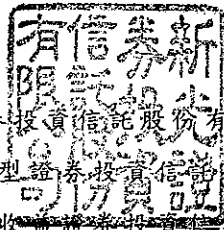 新光證
券投資
信託股份
有限公司
投資信託股份有
型證券投資信託
證券投資信